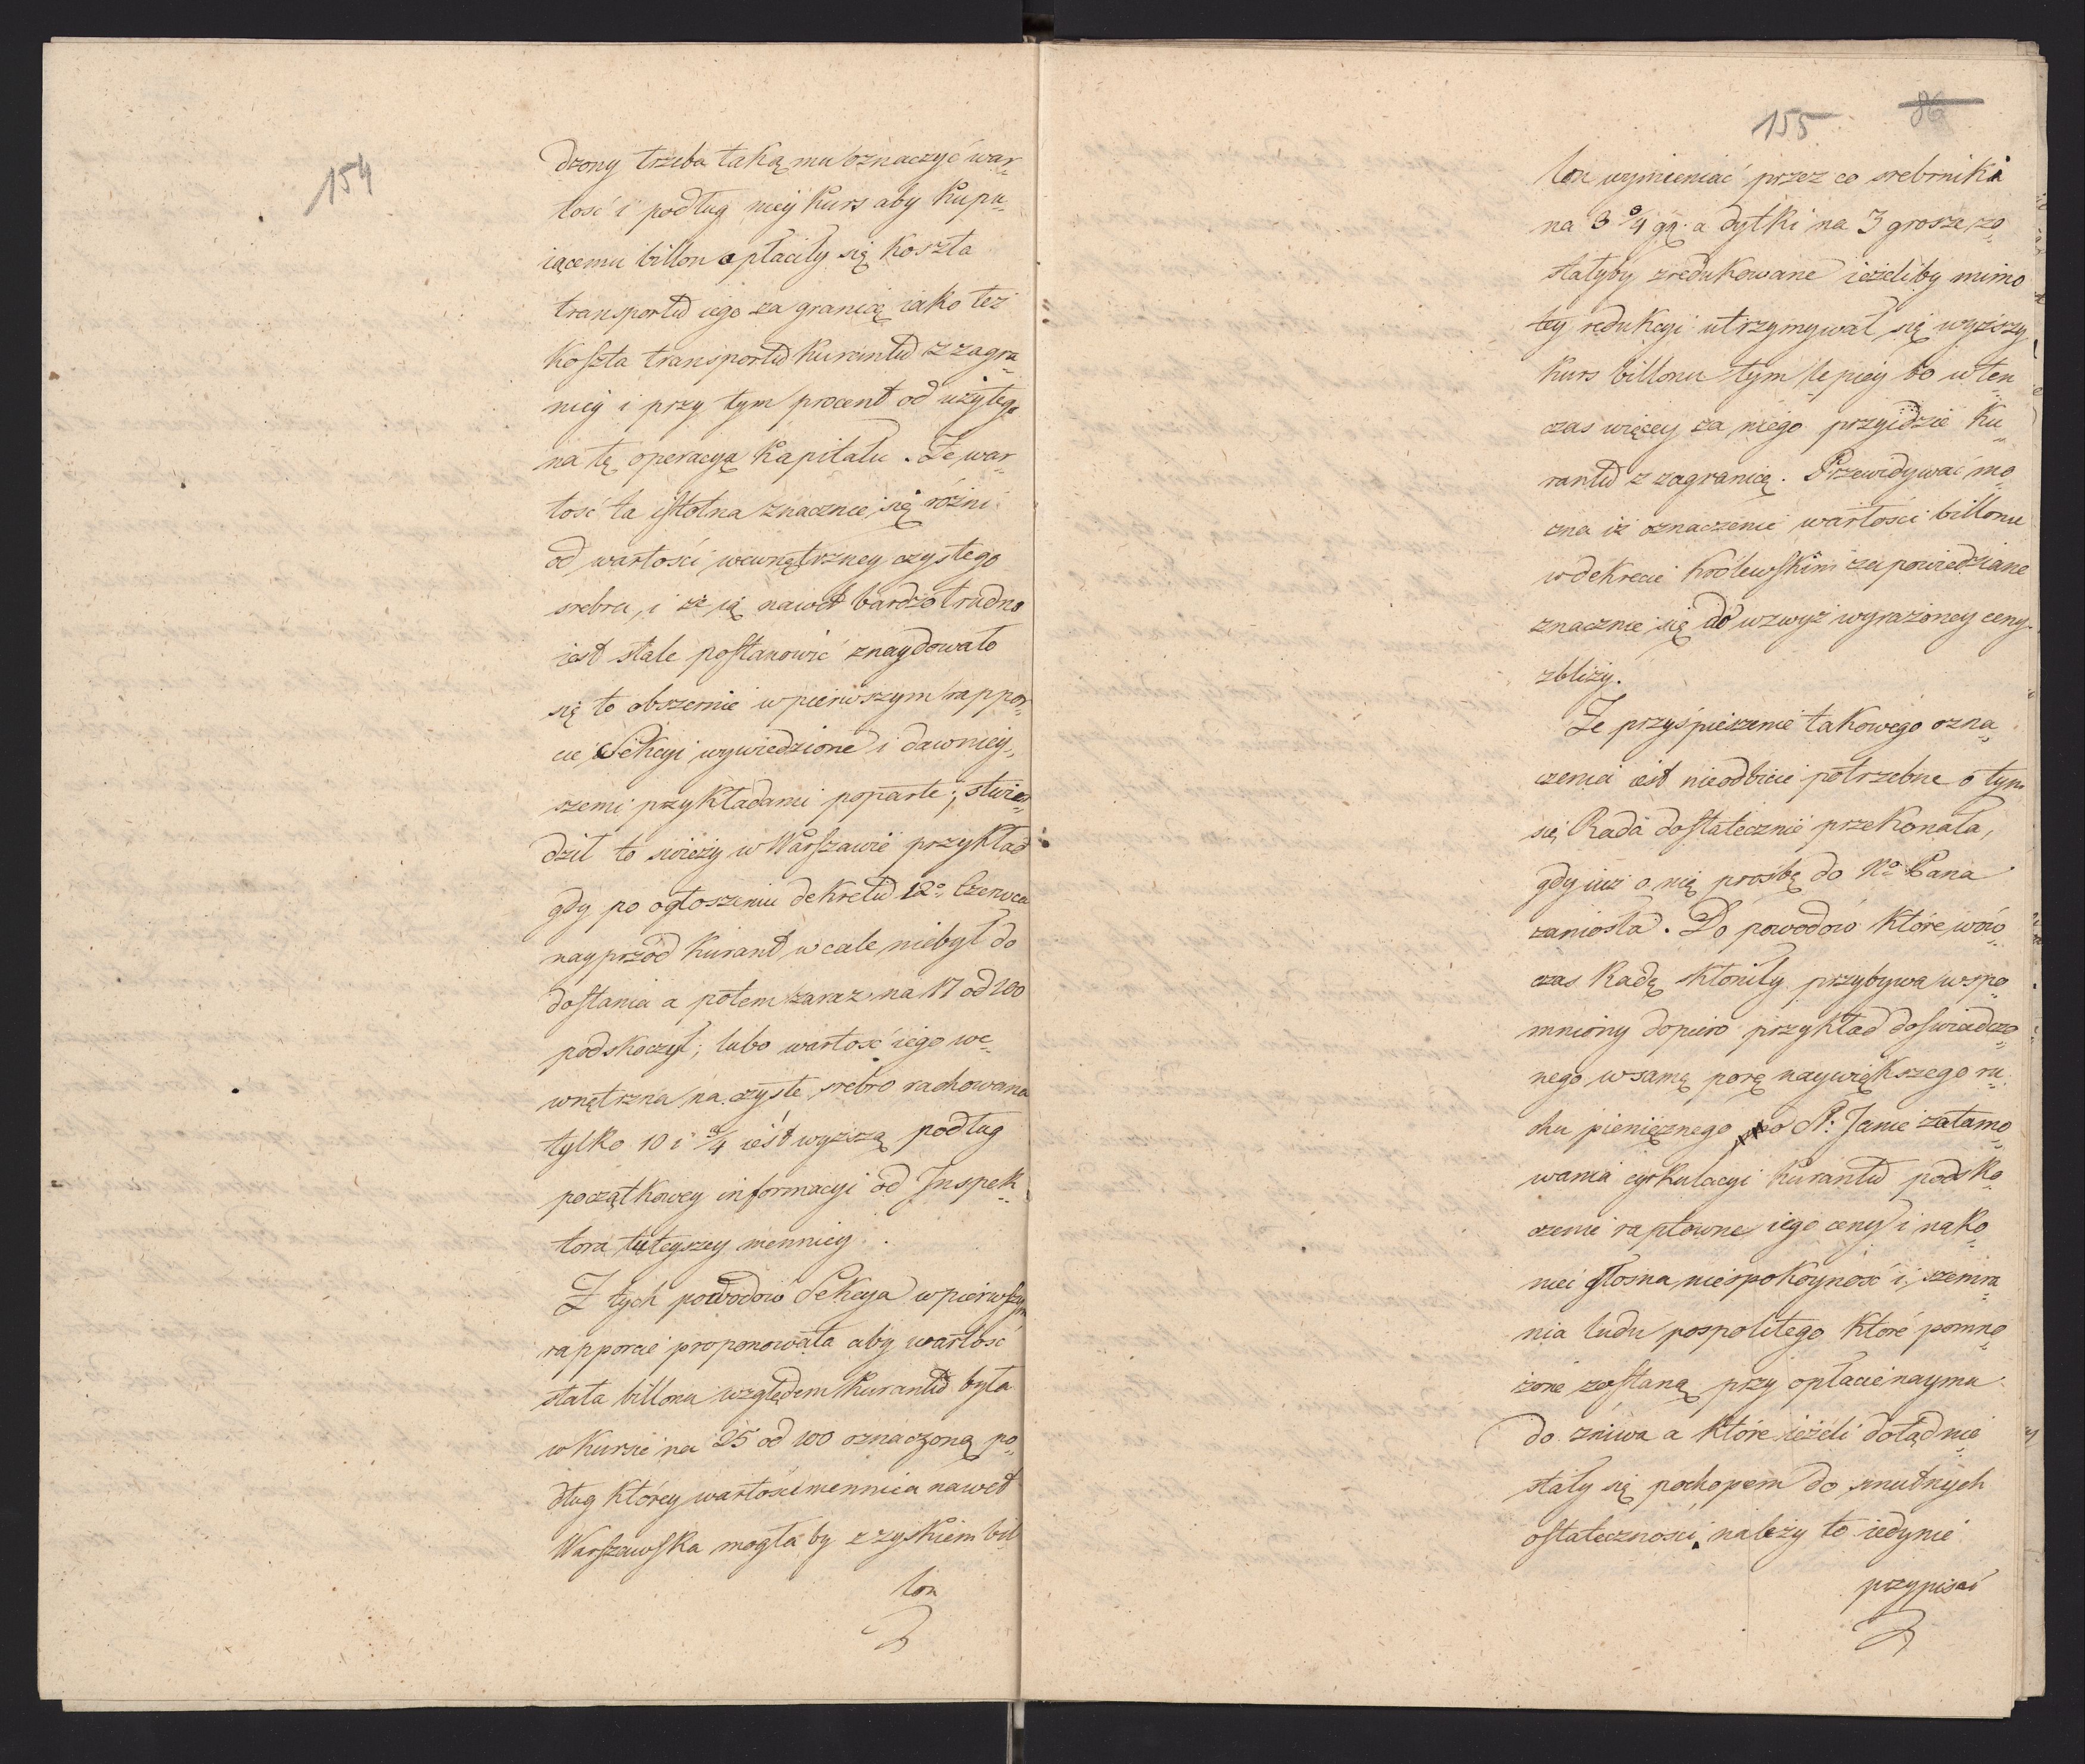 154
dzony trzeba taką mu oznaczyć war„
tość i podług niey kurs aby kupu„
iącemu billon opłaciły się koszta
transportu iego za granicę iako też
koszta transportu kurantu z zagra„
nicy i przy tym procent od użytego
na tę operacyą kapitału. Że war„
tość ta istotna znacznie się różni
od wartości wewnętrzney czystego
srebra, i że ią nawet bardzo trudno
iest stale postanowić znaydowało
się to obszernie w pierwszym rappor„
cie Sekcyi wywiedzione i dawniey„
szemi przykładami poparte; stwier„
dził to świeży w Warszawie przykład
gdy po ogłoszeniu dekretu 12o Czerwca
nayprzód kurant wcale niebył do
dostania a potem zaraz na 17 od 100
podskoczył; lubo wartość iego we„
wnętrzna na czyste srebro rachowana
tylko 10 i 3/4 iest wyższą podług
początkowey informacyi od Inspek„
tora tuteyszey mennicy.
Z tych powodow Sekcya w pierwszym
rapporcie proponowała aby wartość
stała billonu względem kurantu była
w kursie na 25 od 100 oznaczoną po„
dług którey wartości mennica nawet
Warszawska mogła by z zyskiem bil
lon
155 86
lon wymieniać przez co srebrniki
na 3 3/4 gą. a dytki na 3 grosze zo„
stałyby zredukowane ieżeliby mimo
tey redukcyi utrzymywał się wyższy
kurs billonu tym lepiey bo w ten„
czas więcey za niego przyidzie ku„
rantu z zagranicę. Przewidywać mo„
żna iż oznaczenie wartości billonu
w dekrecie Królewskim zapowiedziane
znacznie się do wzwyż wyrażoney ceny
zbliży.
Że przyśpieszenie takowego ozna„
czenia iest nieodbicie potrzebne o tym
się Rada dostatecznie przekonała,
gdy iuż o nią prośbę do No Pana
zaniosła. Do powodow które wów„
czas Radę skłoniły przybywa wspo„
mniony dopiero przykład doświadczo„
nego w samą porę naywiększego ru„
chu pieniężnego po S: Janie zatamo„
wania cyrkulacyi kurantu podsko„
czenie rapłowne iego ceny i nako„
niec głosna niespokoyność i szemra„
nia ludu pospolitego które pomno„
żone zostaną przy opłacie naymu
do żniwa a które ieżeli dotąd nie
stały się pochopem do smutnych
ostateczności, należy to iedynie
przypisać